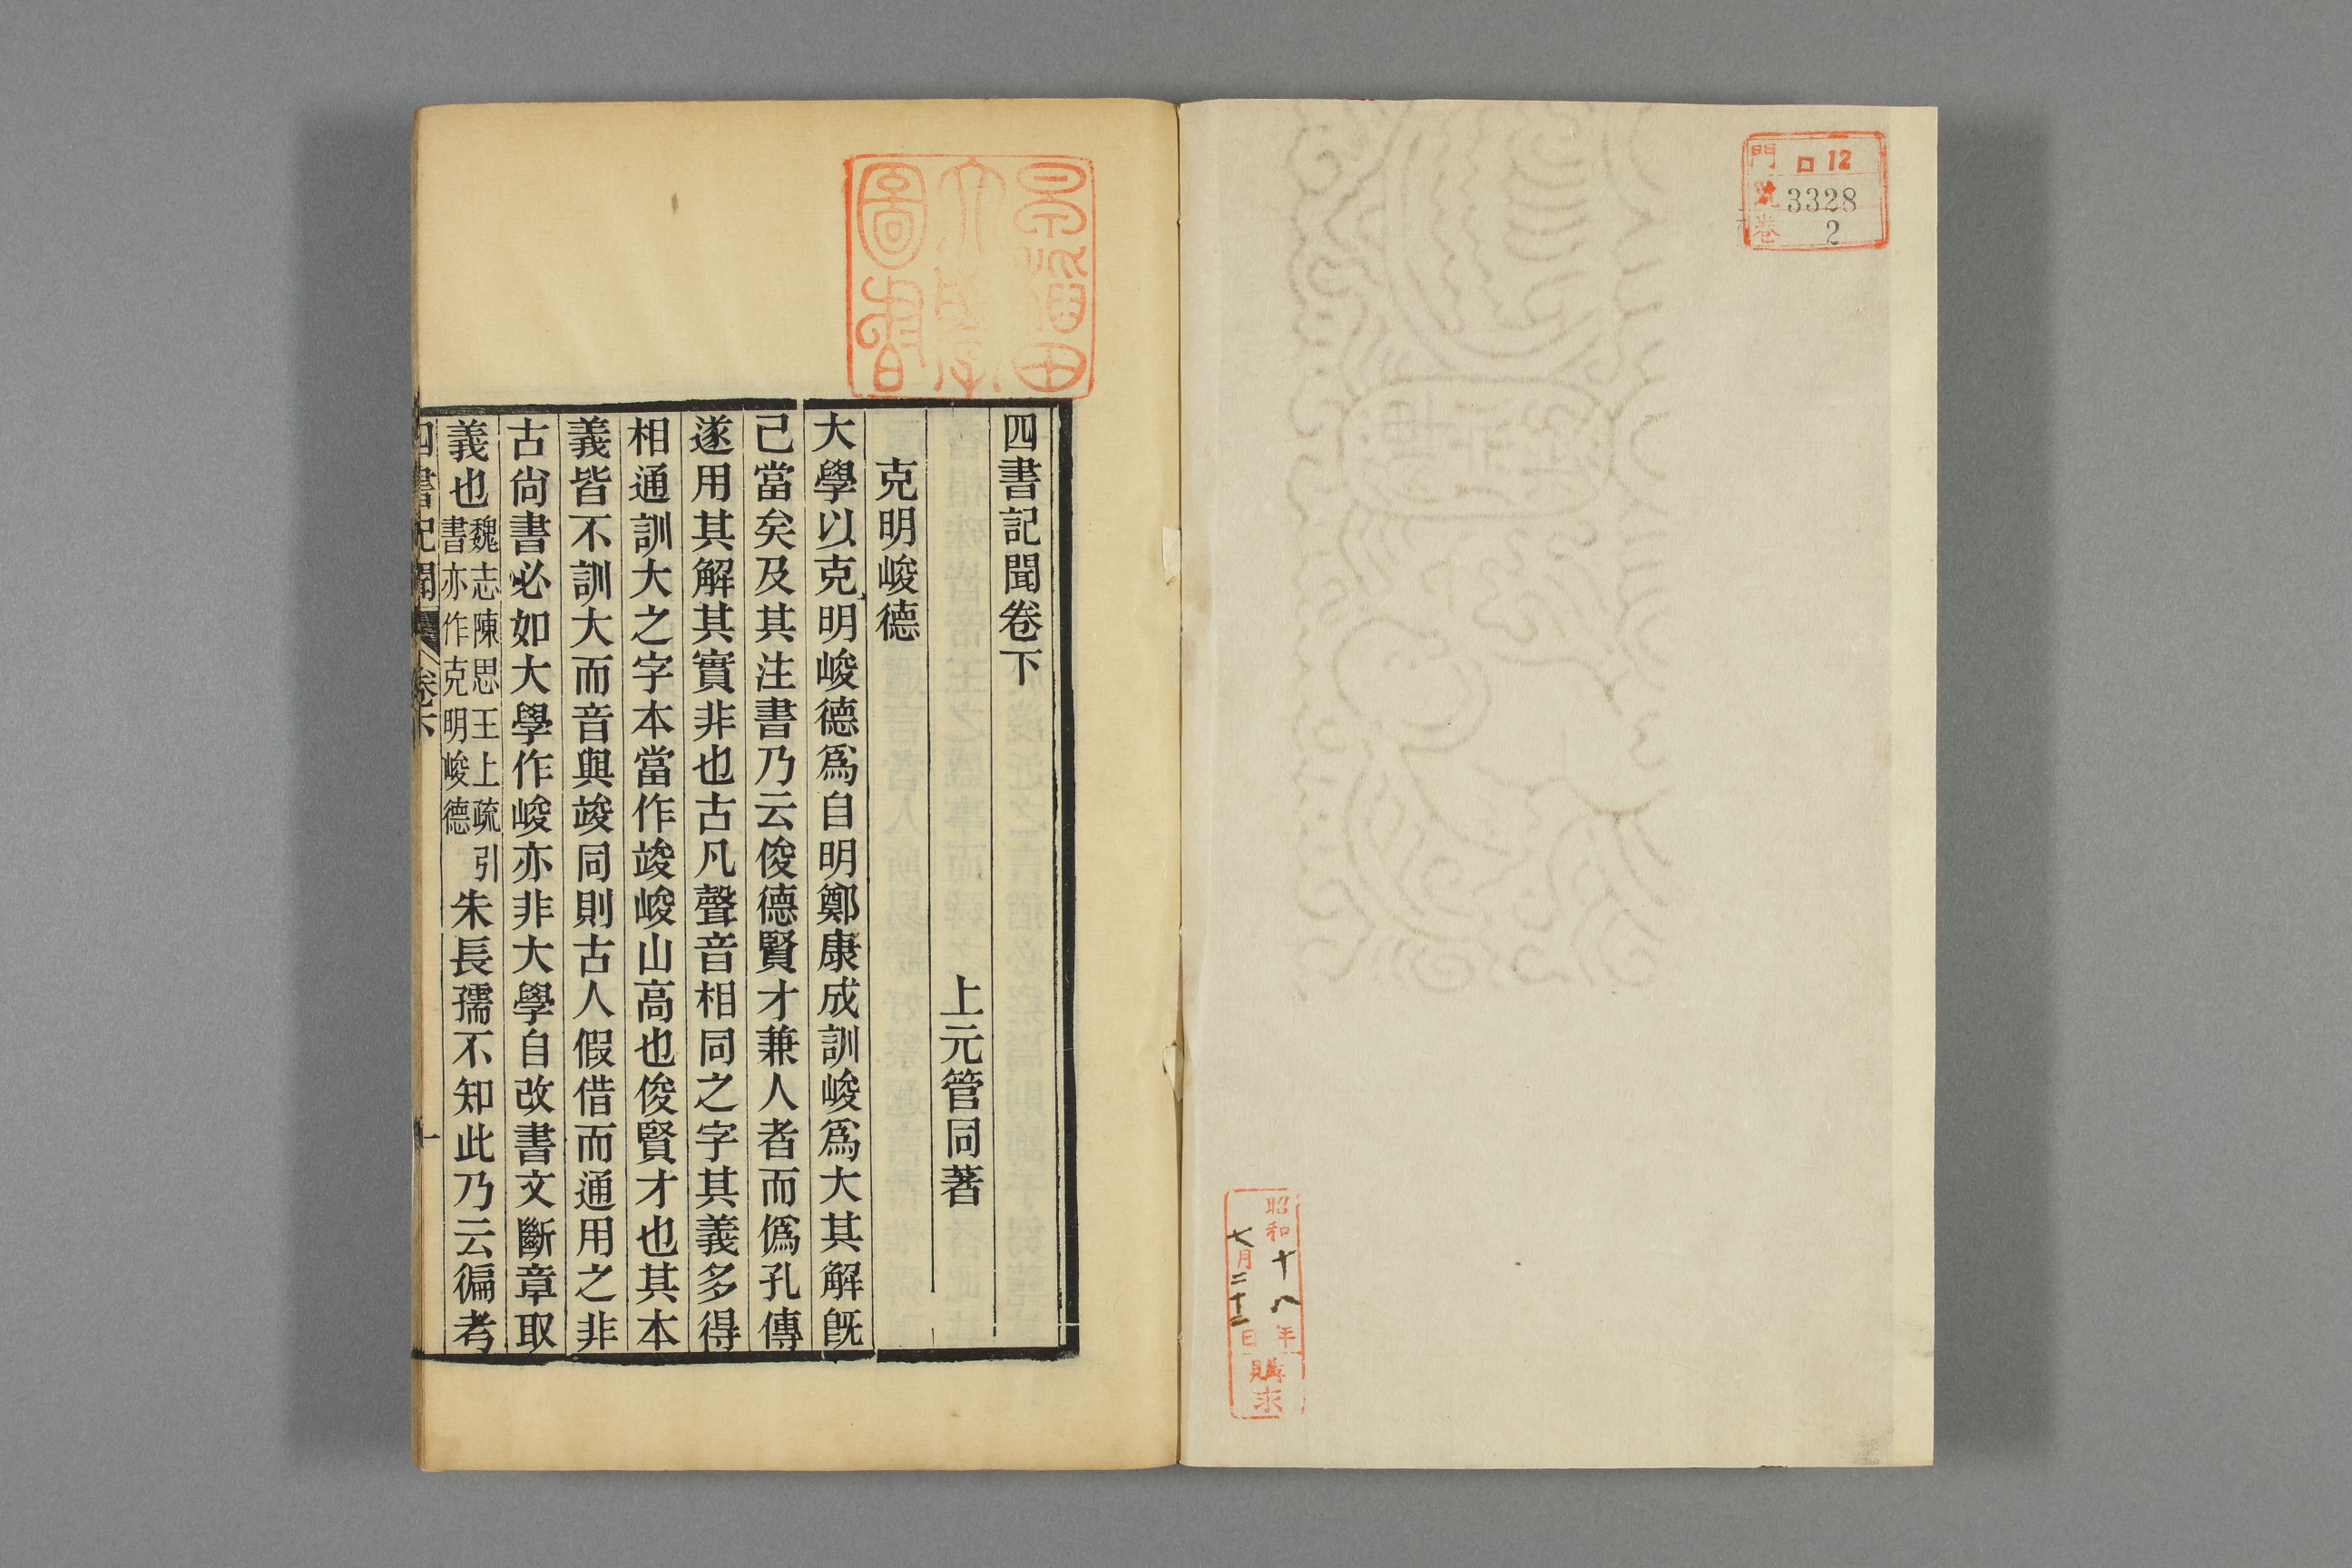 門 ロ12
號 3328
卷 2
昭和十八年
七月二十二日
購求
早稲田
大學
圖書
四書記聞卷下
上元管同著
克明峻德
大學以克明峻德爲自明鄭康成訓峻爲大其解旣
己當矣及其注書乃云俊德賢才兼人者而僞孔傳
遂用其解其實非也古凡聲音相同之字其義多得
相通訓大之字本當作竣峻山高也俊賢才也其本
義皆不訓大而音與竣同則古人假借而通用之非
古尙書必如大學作峻亦非大學自改書文斷章取
義也魏志陳思王上疏引書亦作克明峻德朱長孺不知此乃云徧考
四書記聞 卷下 一